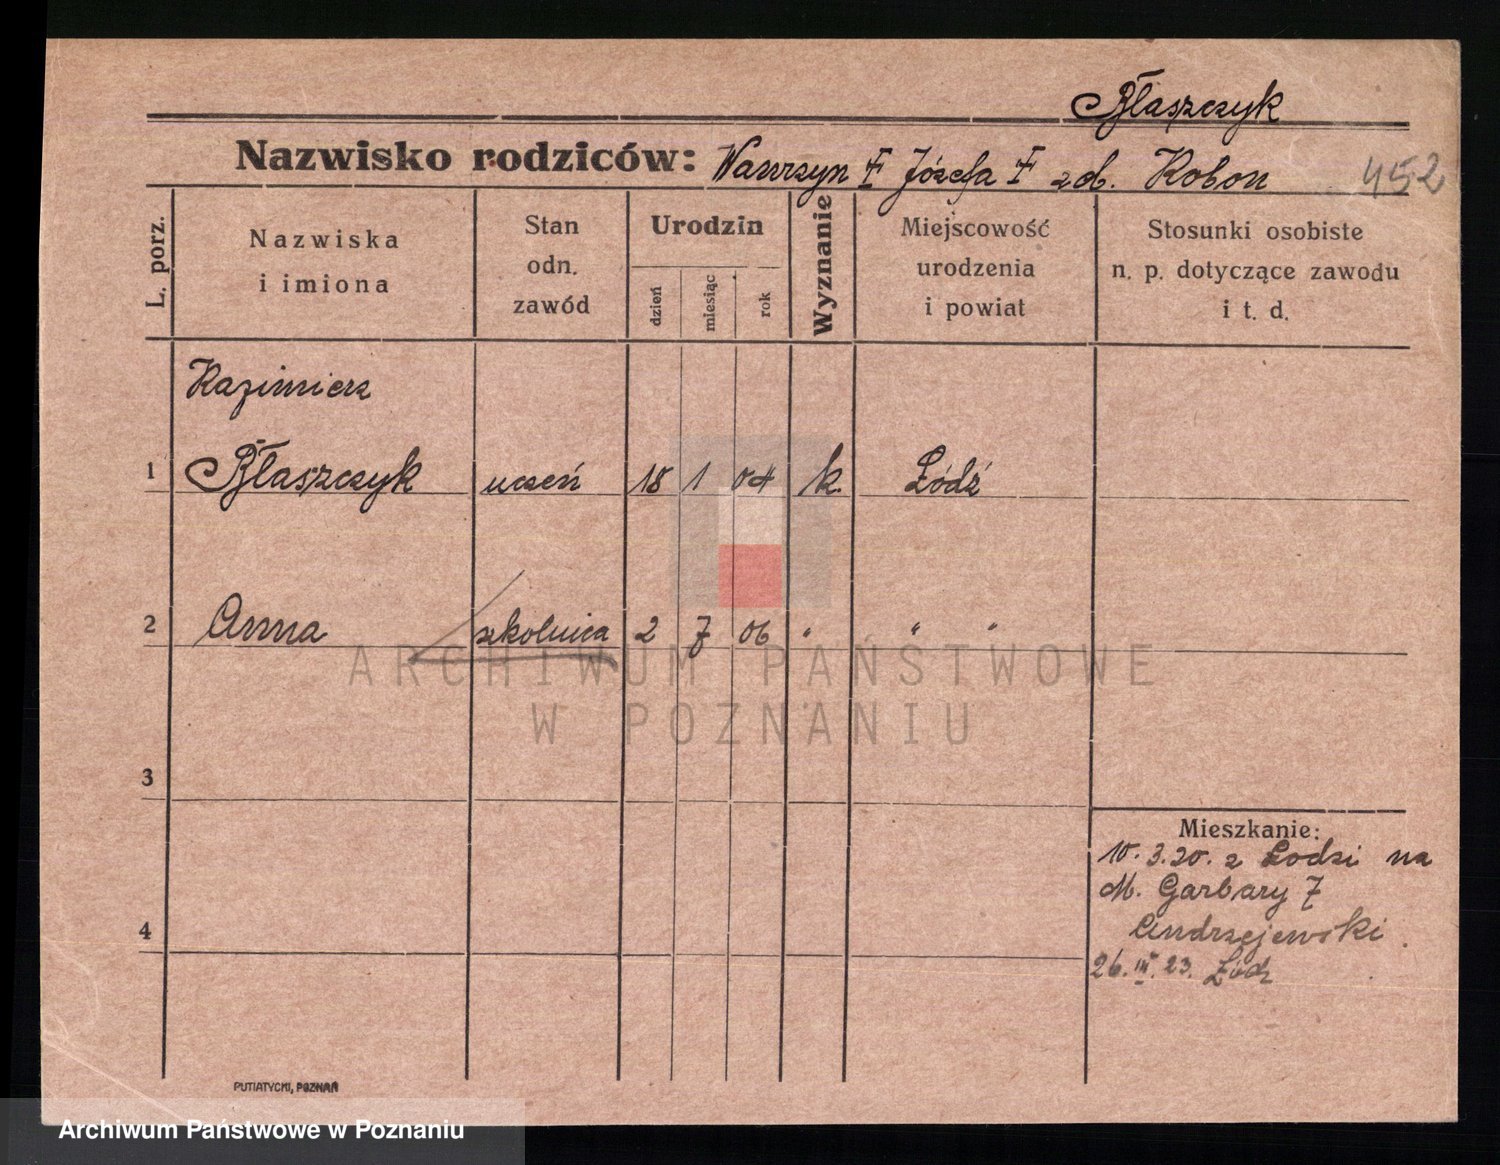 Błaszczyk
Nazwisko rodziców: Wawrzyn Józefa zd. Kobon 452
L. porz.
Nazwiska
i imiona
Stan
odn.
zawód
Urodzin
dzień
miesiąc
rok
Wyznanie
Miejscowość
urodzenia
i powiat
Stosunki osobiste
n. p. dotyczące zawodu
i t. d.
Kazimierz
1 Błaszczyk uczeń 18 1 04 k. Łódź
2 Anna szkolnica 2 7 06 " " "
ARCHIWUM PAŃSTWOWE
W POZNANIU
3
4
Mieszkanie:
10.3.20. z Łodzi na
M. Garbary 7
Andrzejewski
26.III.23. Łódz
PUTIATYCKI, POZNAŃ
Archiwum Państwowe w Poznaniu